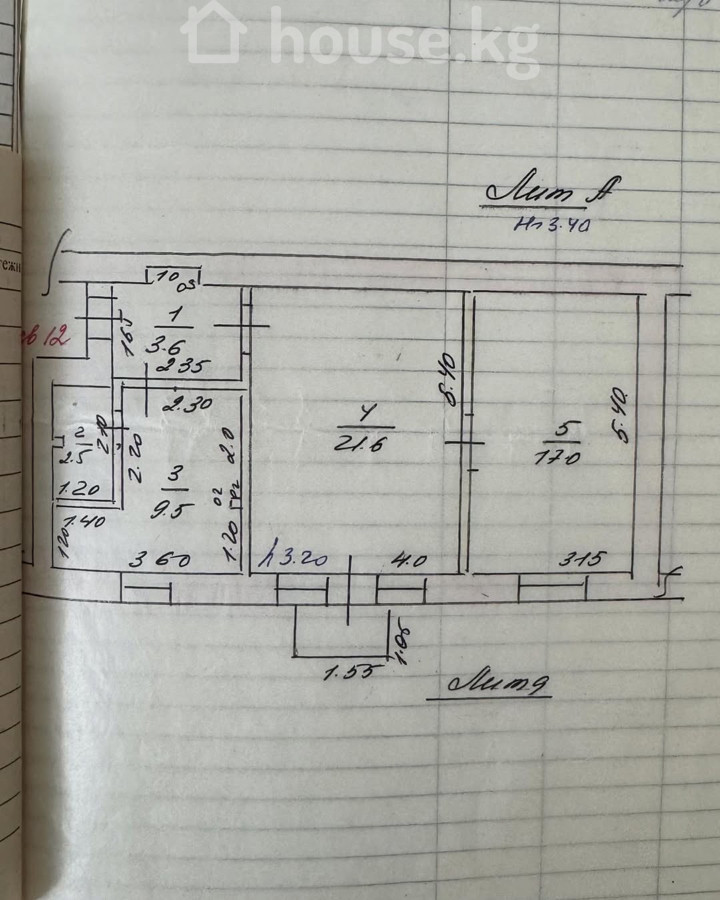 house.kg
Лит А
Н=3.40
10
05
тежи
кв 12
1
3.6
165
2.35
2.30
2
2.5
2.10
1.20
1.40
120
2.20
3
9.5
2.0
ог
1.20
3.60
4
21.6
5.40
h 3.20
4.0
5
17.0
5.40
3.15
1.55
1.05
Лит д